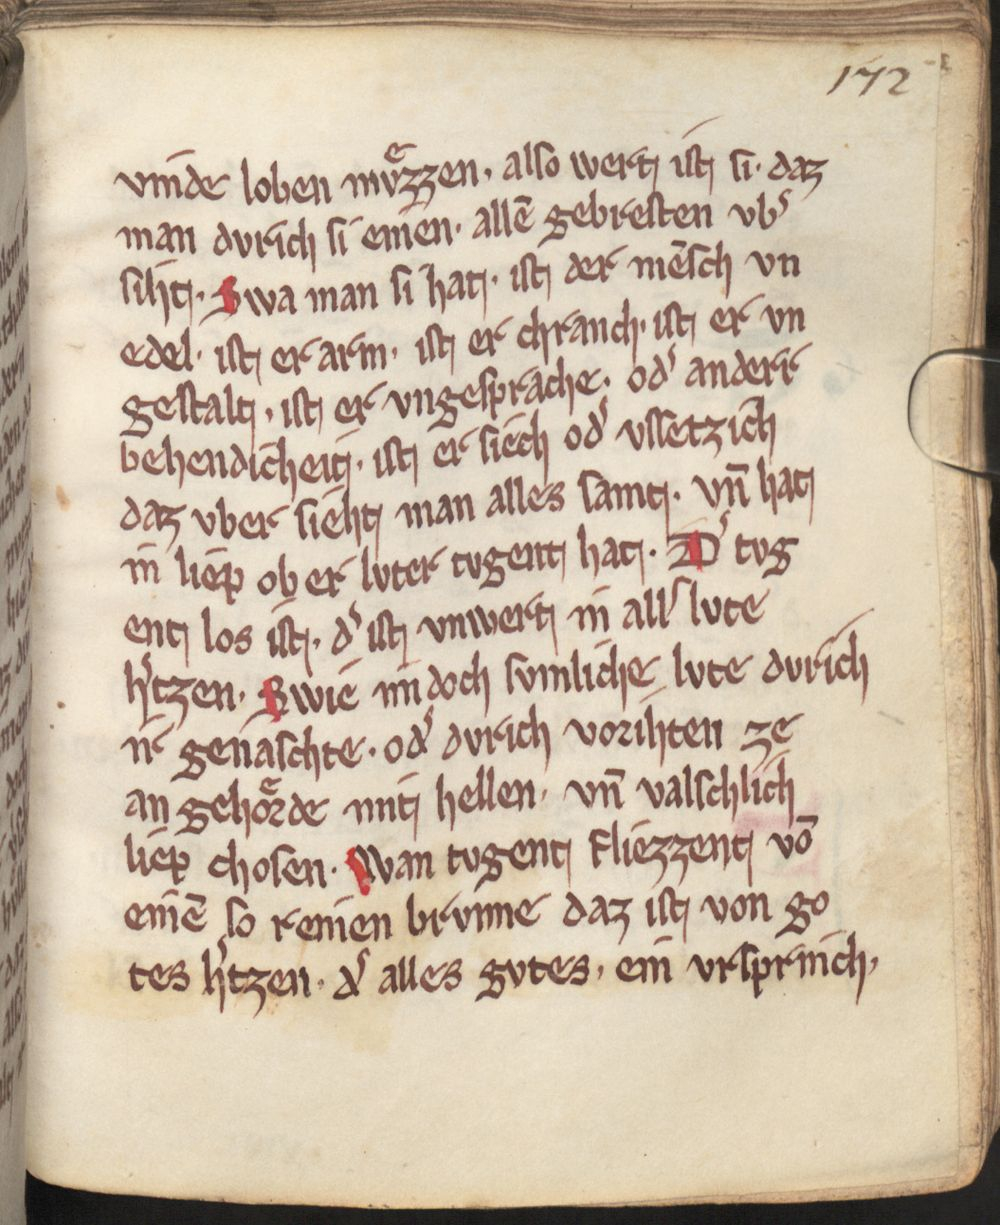 172
vinde loben mvͤzzen. also wert ist si. daz
man dvrich si einen. allē gebresten vbs̄
siht. Swa man si hat. ist der mēsch vn
edel. ist er arm. ist er chranch. ist er vn
gestalt. ist er vngesprache. od᾽ anderr
behendicheit. ist er siech od᾽ vssetzich
daz vber sieht man alles samt. vn̄ hat
in liep ob er lvter tvgent hat. D᾽ tvg
ent los ist. d᾽ ist vnwert in all᾽ lvte
h᾽tzen. Swie im doch svmliche lvte dvrich
ir genaschte. od᾽ dvrich vorihten ze
an gehoͤrde mit hellen. vn̄ valschlich
liep chosen. Wan tvgent fliezzent vō
einē so reinen brvnne daz ist von go
tes h᾽tzen. d᾽ alles gvtes. ein vrsprinch.